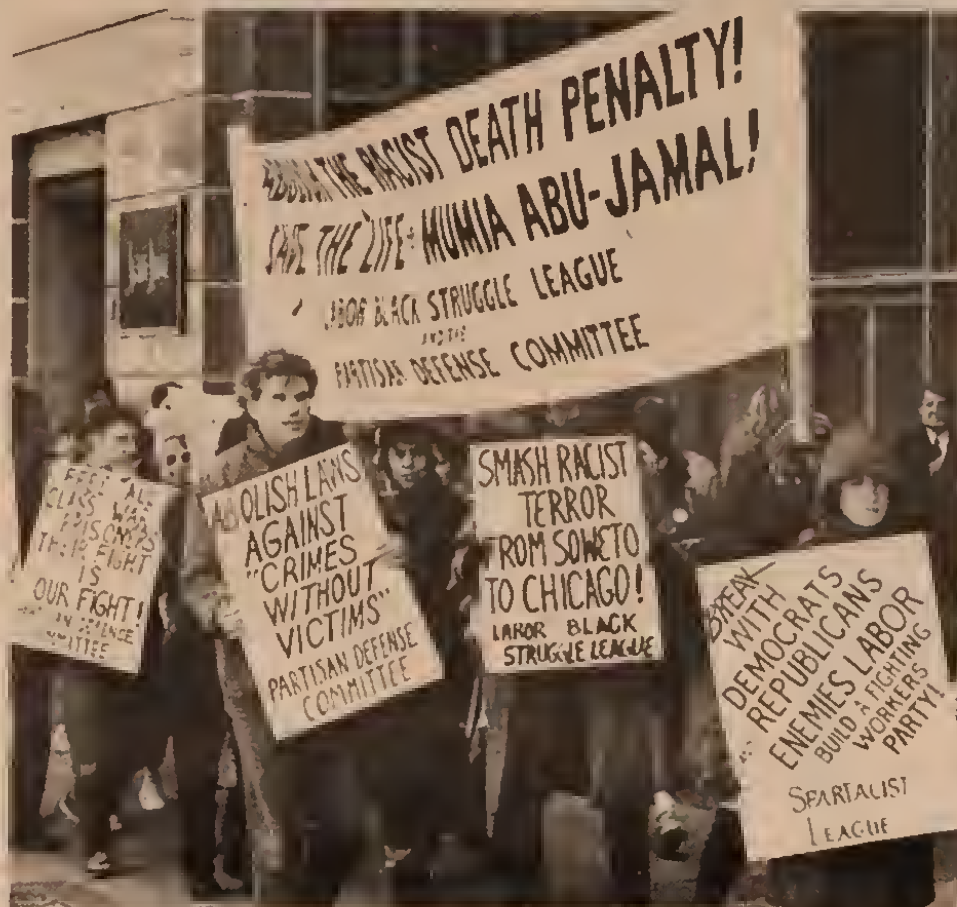 ABOLISH THE RACIST DEATH PENALTY!
SAVE THE LIFE OF MUMIA ABU-JAMAL!
LABOR BLACK STRUGGLE LEAGUE
AND THE
PARTISAN DEFENSE COMMITTEE
FREE ALL
CLASS WAR
PRISONERS
THEIR FIGHT
IS
OUR FIGHT!
DEFENSE
ABOLISH LAWS
AGAINST
"CRIMES
WITHOUT
VICTIMS"
PARTISAN DEFENSE
COMMITTEE
SMASH RACIST
TERROR
FROM SOWETO
TO CHICAGO!
LABOR BLACK
STRUGGLE LEAGUE
BREAK
WITH
DEMOCRATS
REPUBLICANS
ENEMIES LABOR
BUILD A FIGHTING
WORKERS
PARTY!
SPARTACIST
LEAGUE